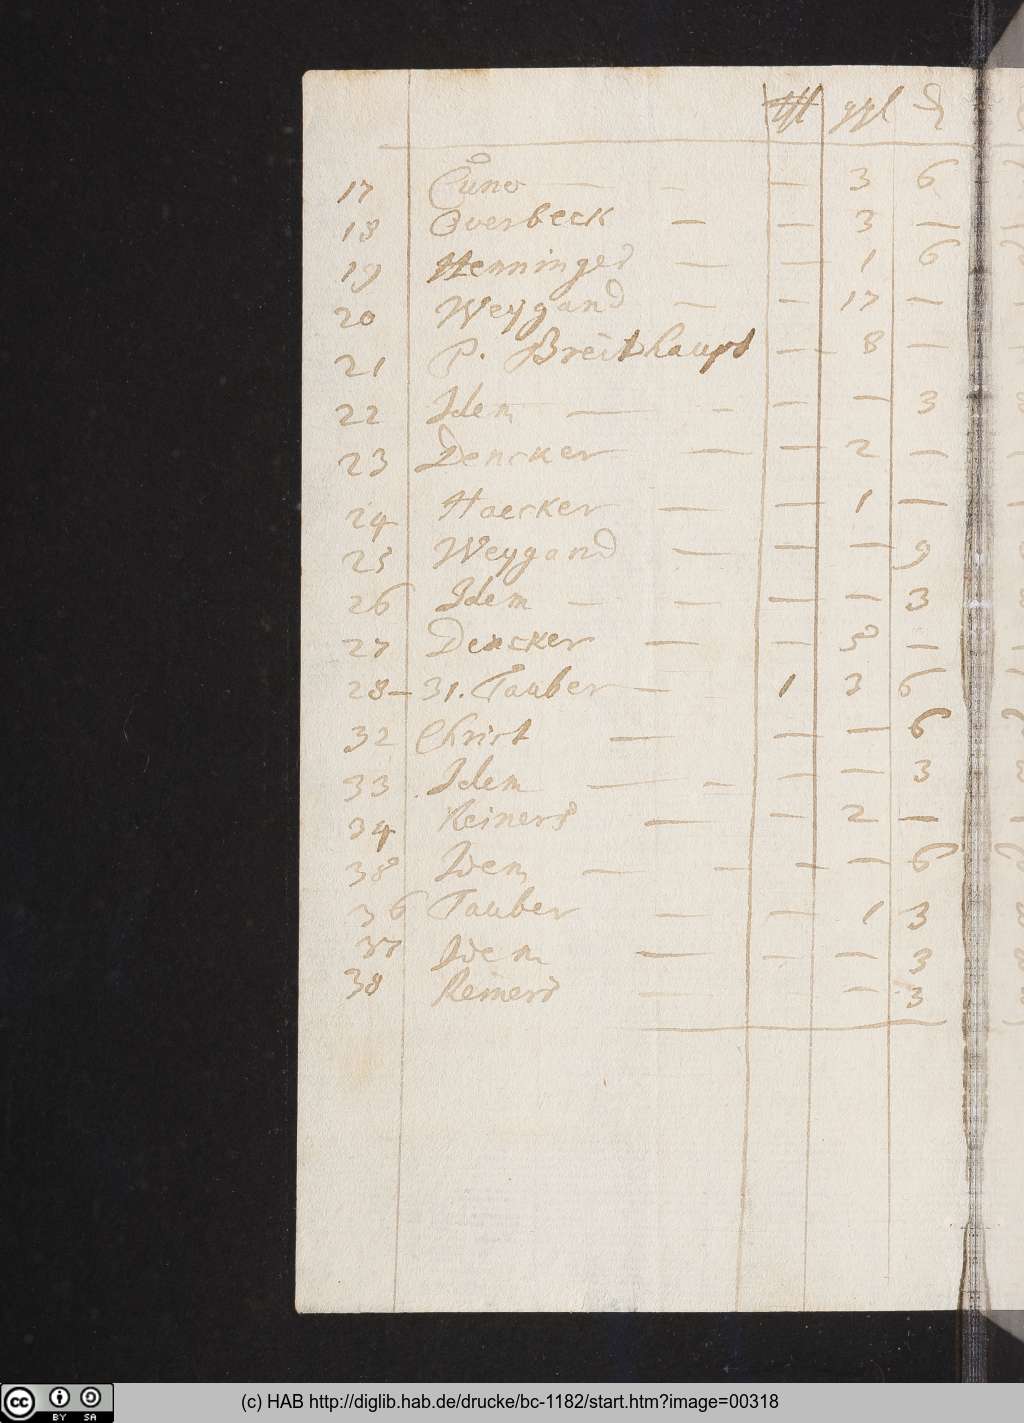 ggl ₰
17 Cuno — — — 3 6
18 Overbeck — — 3 —
19 Henninges — — 1 6
20 Weygand — — 17 —
21 P. Breithaupt — 8 —
22 Idem — — — — 3
23 Dencker — — 2 —
24 Haecker — — 1 —
25 Weygand — — — 9
26 Idem — — — — 3
27 Dencker — — 5 —
28–31. Tauber — 1 3 6
32 Christ — — — 6
33 Idem — — — — 3
34 Reiners — — 2 —
35 Idem — — — — 6
36 Tauber — — 1 3
37 Idem — — — 3
38 Reiners — — 3
(c) HAB http://diglib.hab.de/drucke/bc-1182/start.htm?image=00318
CC BY SA